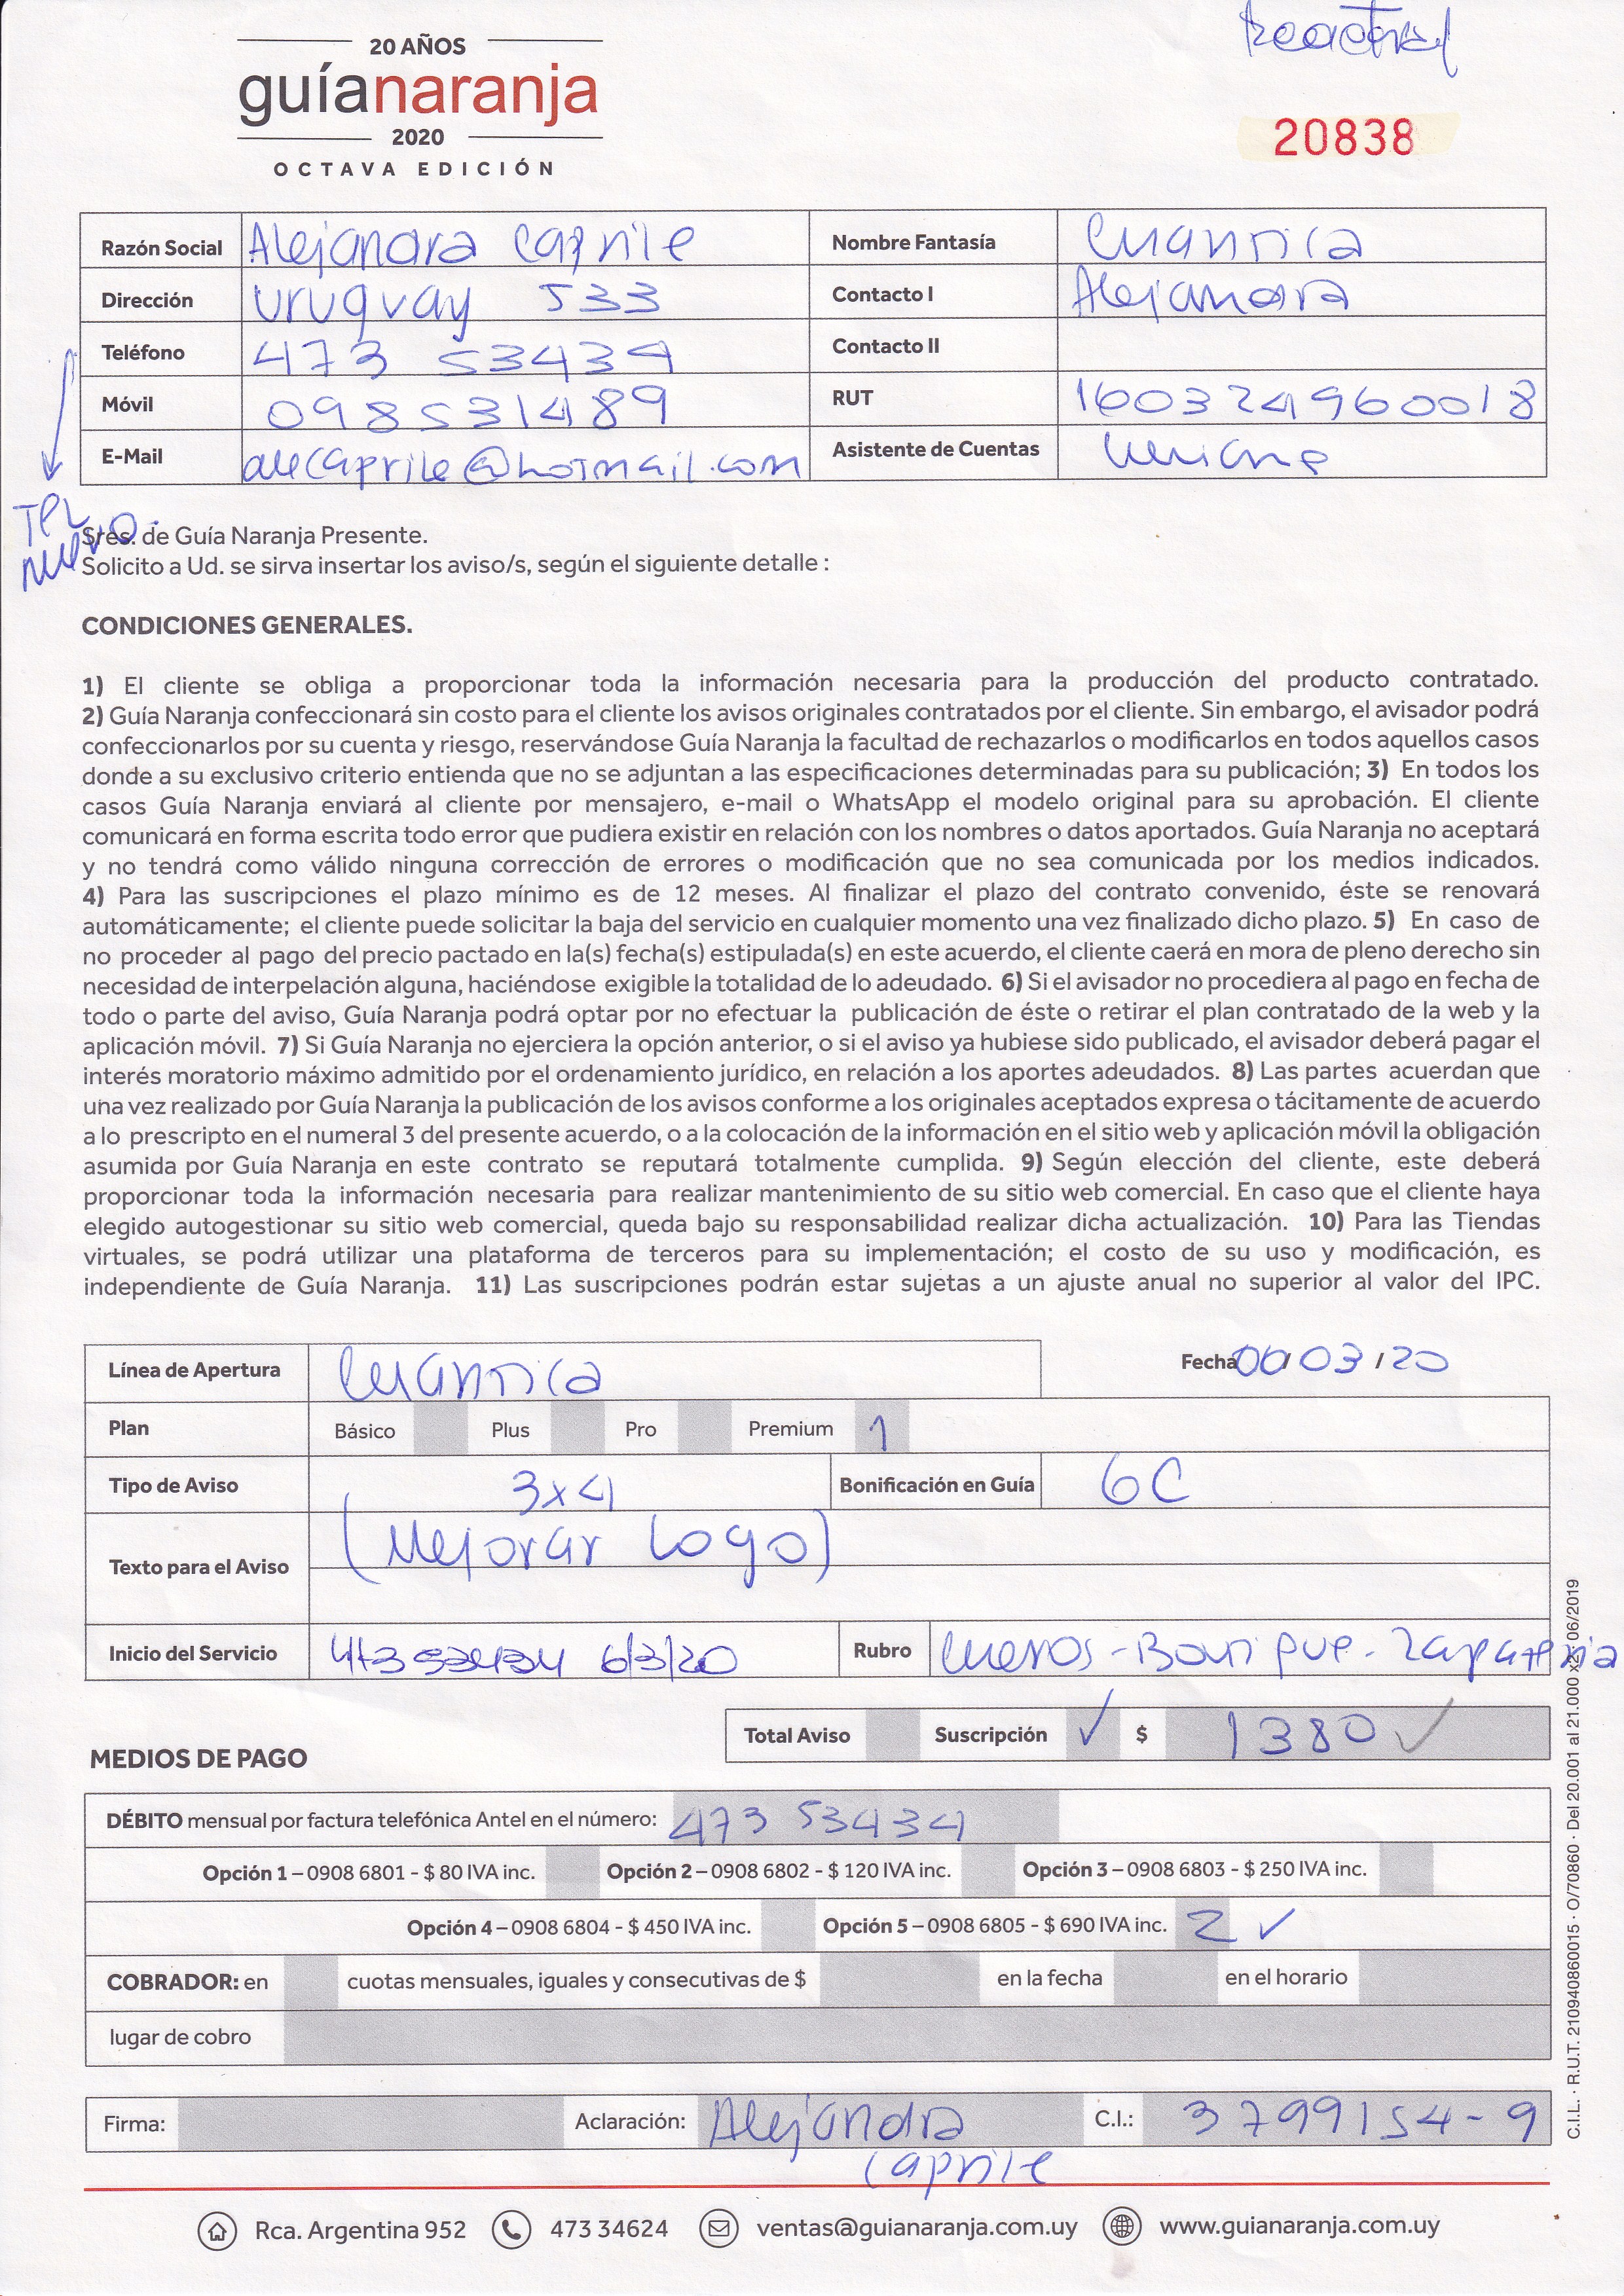 20 AÑOS
guíanaranja
2020
OCTAVA EDICIÓN
20838
Razón Social Alejandra Caprile Nombre Fantasía Cuantica
Dirección Uruguay 533 Contacto I Alejandra
Teléfono 473 53434 Contacto II
Móvil 098531489 RUT 160324960018
E-Mail alecaprile@hotmail.com Asistente de Cuentas
Tel
nuevo.
Sres. de Guía Naranja Presente.
Solicito a Ud. se sirva insertar los aviso/s, según el siguiente detalle :
CONDICIONES GENERALES.
1) El cliente se obliga a proporcionar toda la información necesaria para la producción del producto contratado.
2) Guía Naranja confeccionará sin costo para el cliente los avisos originales contratados por el cliente. Sin embargo, el avisador podrá
confeccionarlos por su cuenta y riesgo, reservándose Guía Naranja la facultad de rechazarlos o modificarlos en todos aquellos casos
donde a su exclusivo criterio entienda que no se adjuntan a las especificaciones determinadas para su publicación; 3) En todos los
casos Guía Naranja enviará al cliente por mensajero, e-mail o WhatsApp el modelo original para su aprobación. El cliente
comunicará en forma escrita todo error que pudiera existir en relación con los nombres o datos aportados. Guía Naranja no aceptará
y no tendrá como válido ninguna corrección de errores o modificación que no sea comunicada por los medios indicados.
4) Para las suscripciones el plazo mínimo es de 12 meses. Al finalizar el plazo del contrato convenido, éste se renovará
automáticamente; el cliente puede solicitar la baja del servicio en cualquier momento una vez finalizado dicho plazo. 5) En caso de
no proceder al pago del precio pactado en la(s) fecha(s) estipulada(s) en este acuerdo, el cliente caerá en mora de pleno derecho sin
necesidad de interpelación alguna, haciéndose exigible la totalidad de lo adeudado. 6) Si el avisador no procediera al pago en fecha de
todo o parte del aviso, Guía Naranja podrá optar por no efectuar la publicación de éste o retirar el plan contratado de la web y la
aplicación móvil. 7) Si Guía Naranja no ejerciera la opción anterior, o si el aviso ya hubiese sido publicado, el avisador deberá pagar el
interés moratorio máximo admitido por el ordenamiento jurídico, en relación a los aportes adeudados. 8) Las partes acuerdan que
una vez realizado por Guía Naranja la publicación de los avisos conforme a los originales aceptados expresa o tácitamente de acuerdo
a lo prescripto en el numeral 3 del presente acuerdo, o a la colocación de la información en el sitio web y aplicación móvil la obligación
asumida por Guía Naranja en este contrato se reputará totalmente cumplida. 9) Según elección del cliente, este deberá
proporcionar toda la información necesaria para realizar mantenimiento de su sitio web comercial. En caso que el cliente haya
elegido autogestionar su sitio web comercial, queda bajo su responsabilidad realizar dicha actualización. 10) Para las Tiendas
virtuales, se podrá utilizar una plataforma de terceros para su implementación; el costo de su uso y modificación, es
independiente de Guía Naranja. 11) Las suscripciones podrán estar sujetas a un ajuste anual no superior al valor del IPC.
Línea de Apertura Cuantica Fecha 06/03/20
Plan Básico Plus Pro Premium 1
Tipo de Aviso 3x4 Bonificación en Guía 6C
Texto para el Aviso (Mejorar Logo)
Inicio del Servicio 47353434 6/3/20 Rubro Cueros-Boutique-Zapateria
Total Aviso Suscripción ✓ $ 1380 ✓
MEDIOS DE PAGO
DÉBITO mensual por factura telefónica Antel en el número: 473 53434
Opción 1 – 0908 6801 - $ 80 IVA inc. Opción 2 – 0908 6802 - $ 120 IVA inc. Opción 3 – 0908 6803 - $ 250 IVA inc.
Opción 4 – 0908 6804 - $ 450 IVA inc. Opción 5 – 0908 6805 - $ 690 IVA inc. 2 ✓
COBRADOR: en cuotas mensuales, iguales y consecutivas de $ en la fecha en el horario
lugar de cobro
Firma: Aclaración: Alejandra Caprile C.I.: 3799154-9
Rca. Argentina 952 473 34624 ventas@guianaranja.com.uy www.guianaranja.com.uy
C.I.L. · R.U.T. 210940860015 · O/70860 · Del 20.001 al 21.000 x2 · 06/2019